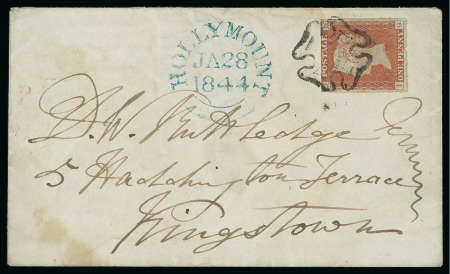 HOLLYMOUNT
JA28
1844
POSTAGE
ONE PENNY
D. W. Ruttledge Esquire
5 Haddington Terrace
Kingstown